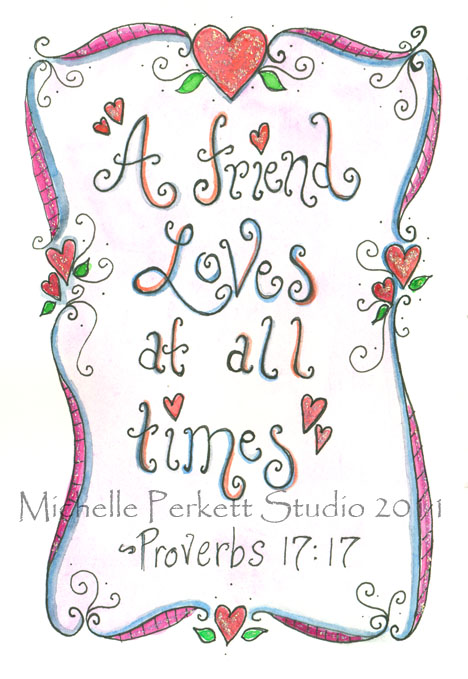 "A friend
Loves
at all
times"
Michelle Perkett Studio 2011
~Proverbs 17:17